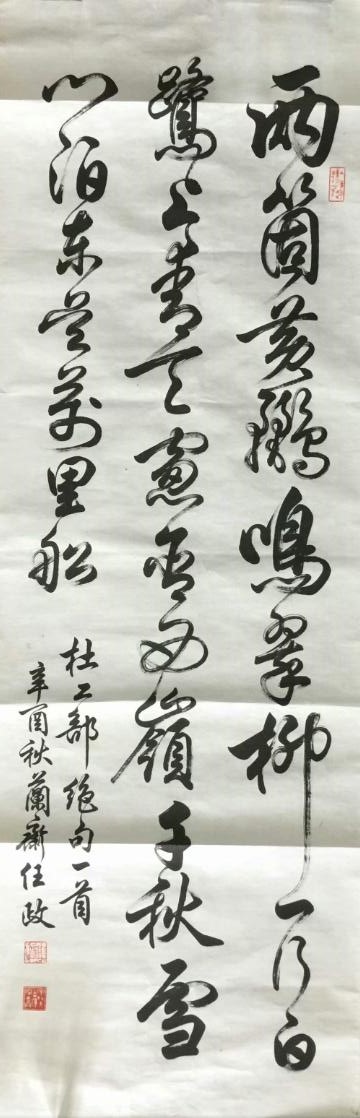 兩箇黃鸝鳴翠柳一行白
鷺上青天窗含西嶺千秋雪
門泊東吳萬里船
杜工部絕句一首
辛酉秋蘭齋任政